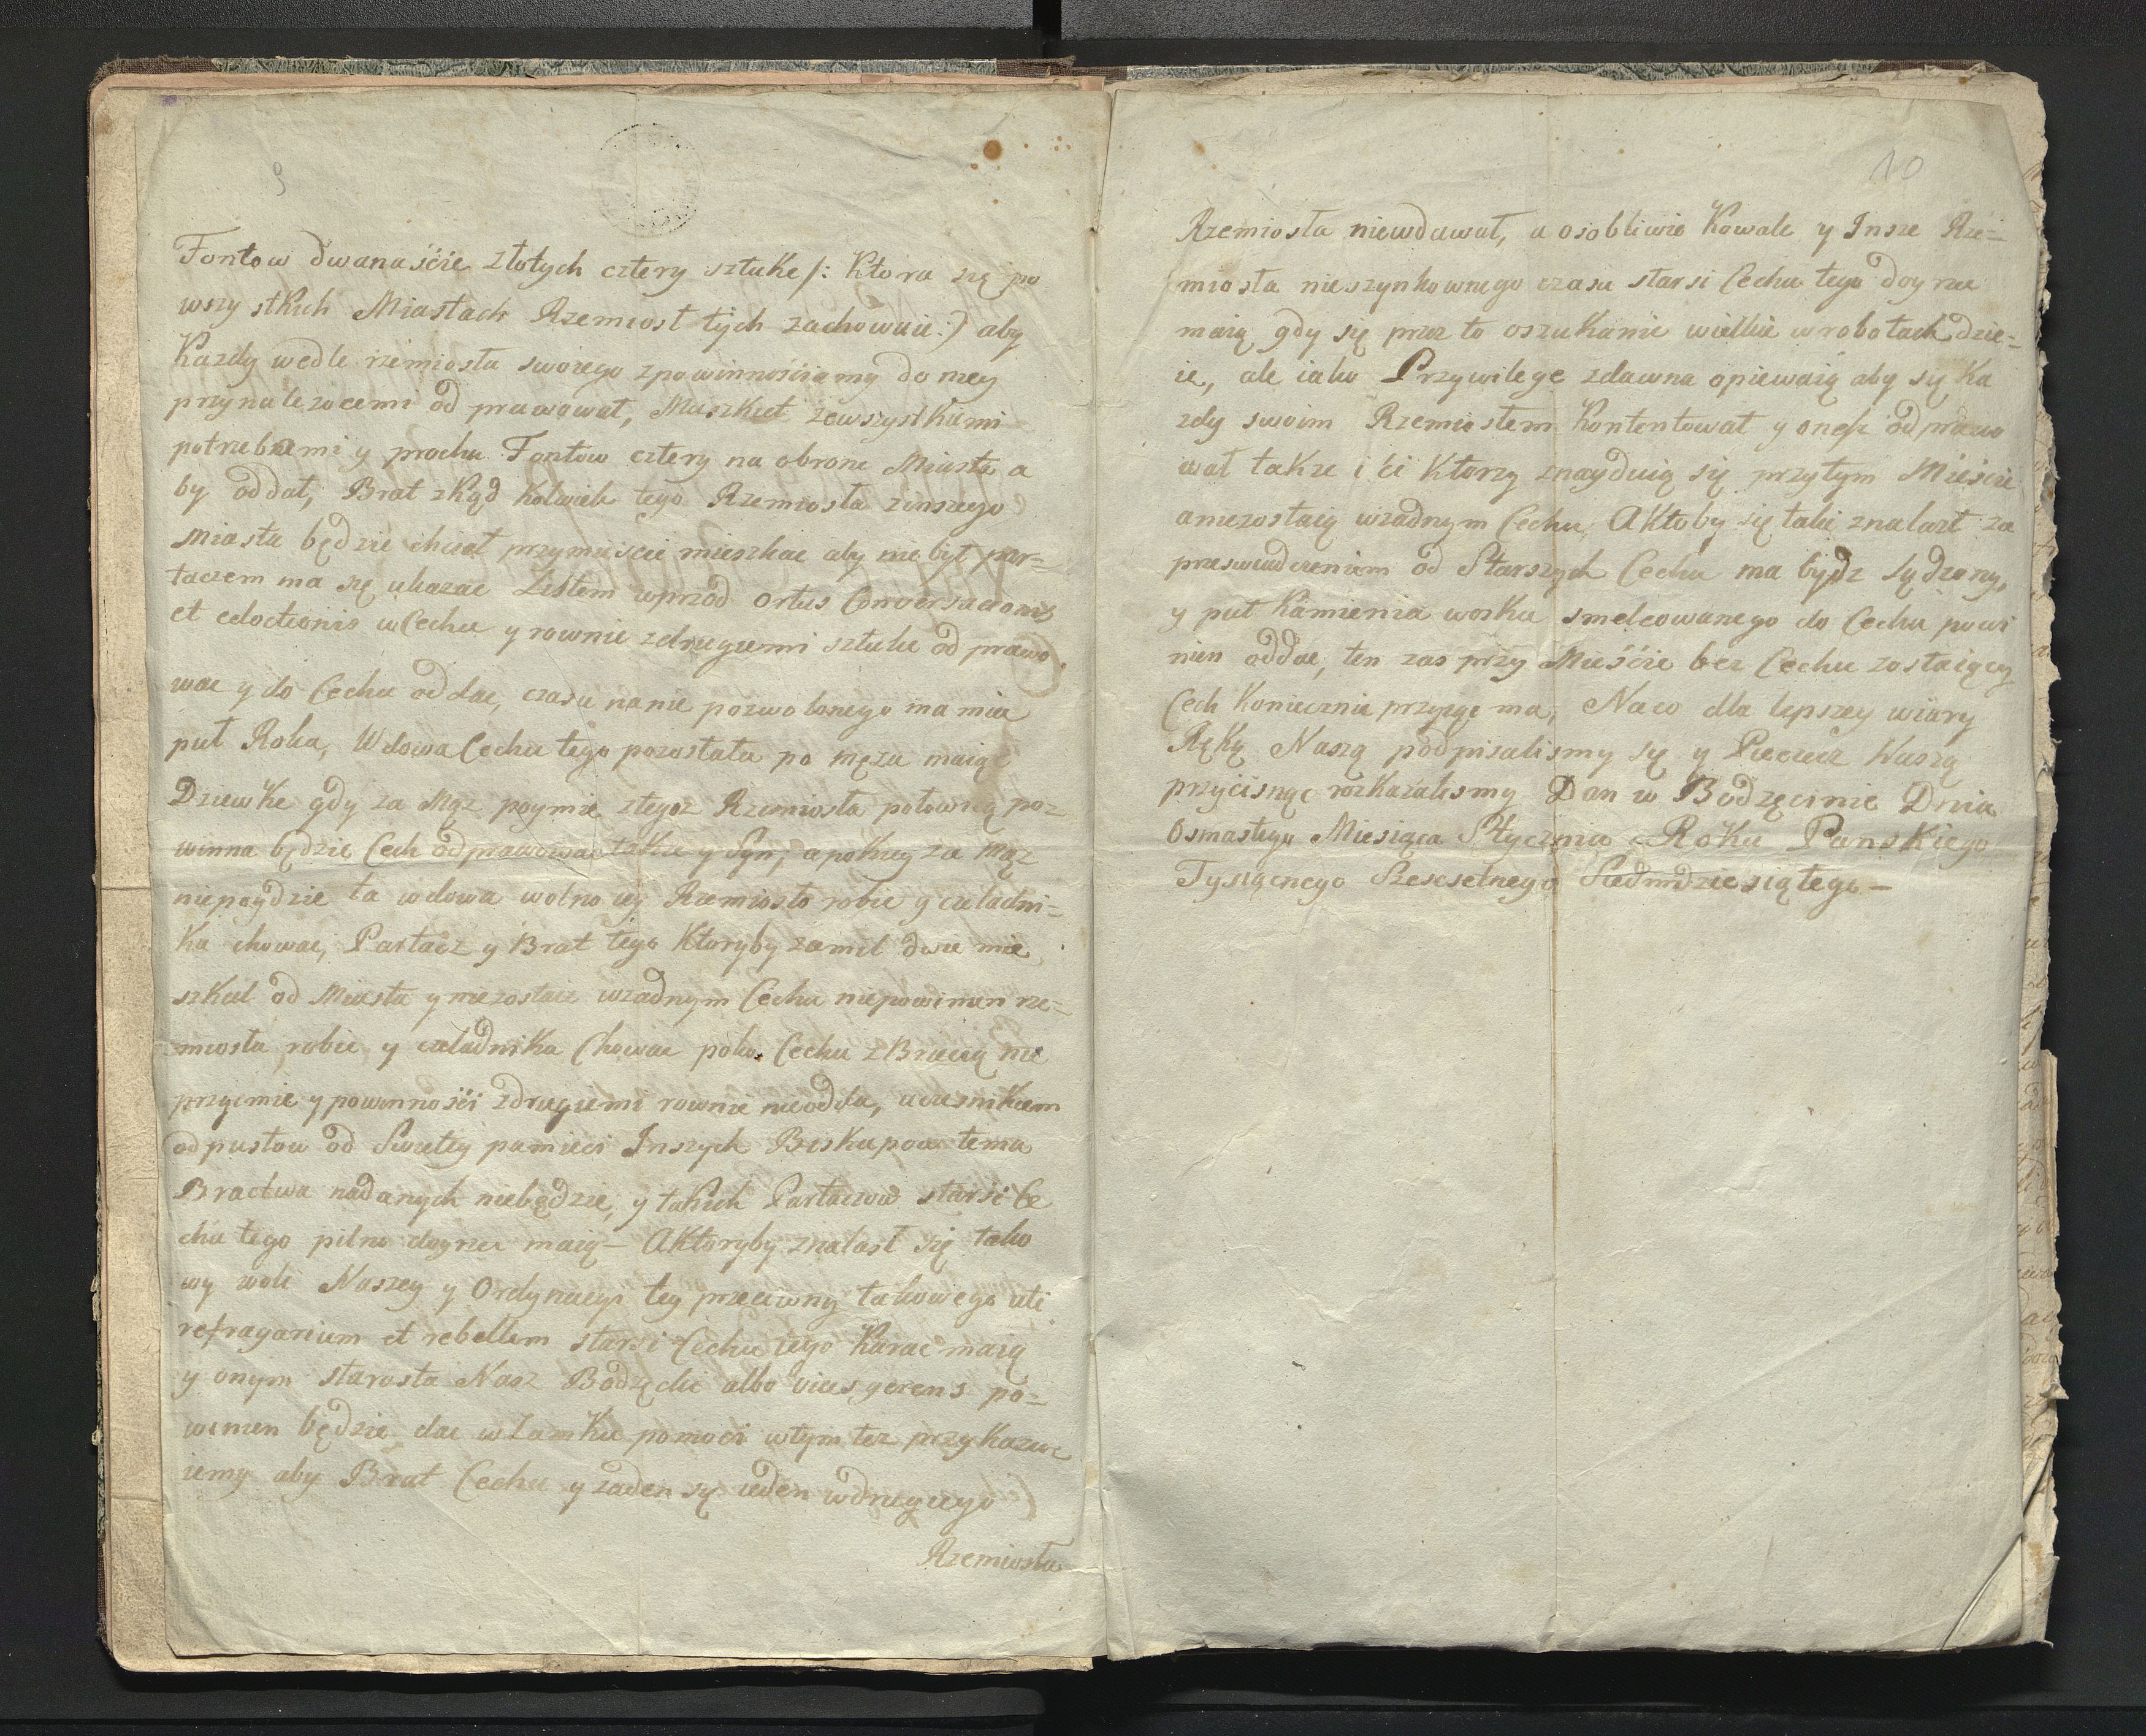 9
Fontow dwanaście złotych cztery sztuke /: Ktora się po
wszystkich Miastach Rzemiosł tych zachowuie :) aby
Kazdy wedle rzemiosła swoiego zpowinnościamy do niey
przynalezocemi od prawował, Muszkiet zewszystkiemi
potrzebnemi y prochu Fontow cztery na obrone Miasta a
by oddał, Brat zkąd kolwiek tego Rzemiosła zinszego
Miasta będzie chciał przymieście mieszkac aby nie był par=
taczem ma się ukazac Listem wprzod ortus Conversacionis
et edoctionis w Cechu y rownie zdrugiemi sztuke od prawo
wac y do Cechu oddac, czasu nanie pozwolonego ma miec
puł Roku, Wdowa Cechu tego pozostała po męzu maiąc
Dziewke gdy za Mąz poymie ztegoz Rzemiosła połowicą po=
winna będzie Cech odprawowac także y Syn, a pokiey za Mąz
niepoydzie ta wdowa wolno iey Rzemiosło robic y czeladni=
ka chowac, Partacz y Brat tego Ktoryby zamil dwie mie
szkał od Miasta y niezostaie wzadnym Cechu niepowinien rze=
miosła robic y czeladnika Chowac poko Cechu z Bracią nie
przyimie y powinności zdrugiemi rownie nieodda, uczesnikiem
odpustow od Swietey pamieci Inszych Biskupow temu
Bractwu nadanych niebędzie, y takich Partaczow starsi Ce
chu tego pilno doyrzec maią – A Ktoryby znalasł się tako
wy woli Naszey y Ordynacyi tey przeciwny takowego uti
refragarium et rebellem starsi Cechu tego Karac maią
y onym starosta Nasz Bodzęcki albo vicesgerens po=
winien będzie dac w Zamku pomoci wtym tez przykazu
iemy aby Brat Cechu y zaden się ieden wdrugiego
Rzemiosła
10
Rzemiosła niewdawał, a osobliwie Kowale y Insze Rze=
miosła nieszynkownego czasu starsi Cechu tego doyrzec
maią gdy się przez to oszukanie wielkie w robotach dzie=
ie, ale iako Przywileye zdawna opiewaią aby się Ka
zdy swoim Rzemiosłem Kontentował y onesz odprawo
wał takze i ci Ktorzy znayduią się przytym Mieście
aniezostaią wzadnym Cechu, A Ktoby się taki znalazł za
przeswiadczeniem od Starszych Cechu ma bydz sądzony,
y puł Kamienia wosku smelcowanego do Cechu powi
nien oddac, ten zas przy Mieście bez Cechu zostaiący
Cech Koniecznie przyiąc ma, Naco dla lepszey wiary
Ręką Naszą podpisalismy się y Pieczec Naszą
przycisnąc rozkazalismy Dan w Bodzęcinie Dnia
Osmastego Miesiąca Stycznia Roku Panskiego
Tysiącnego Szescsetnego Siedmdziesiątego –